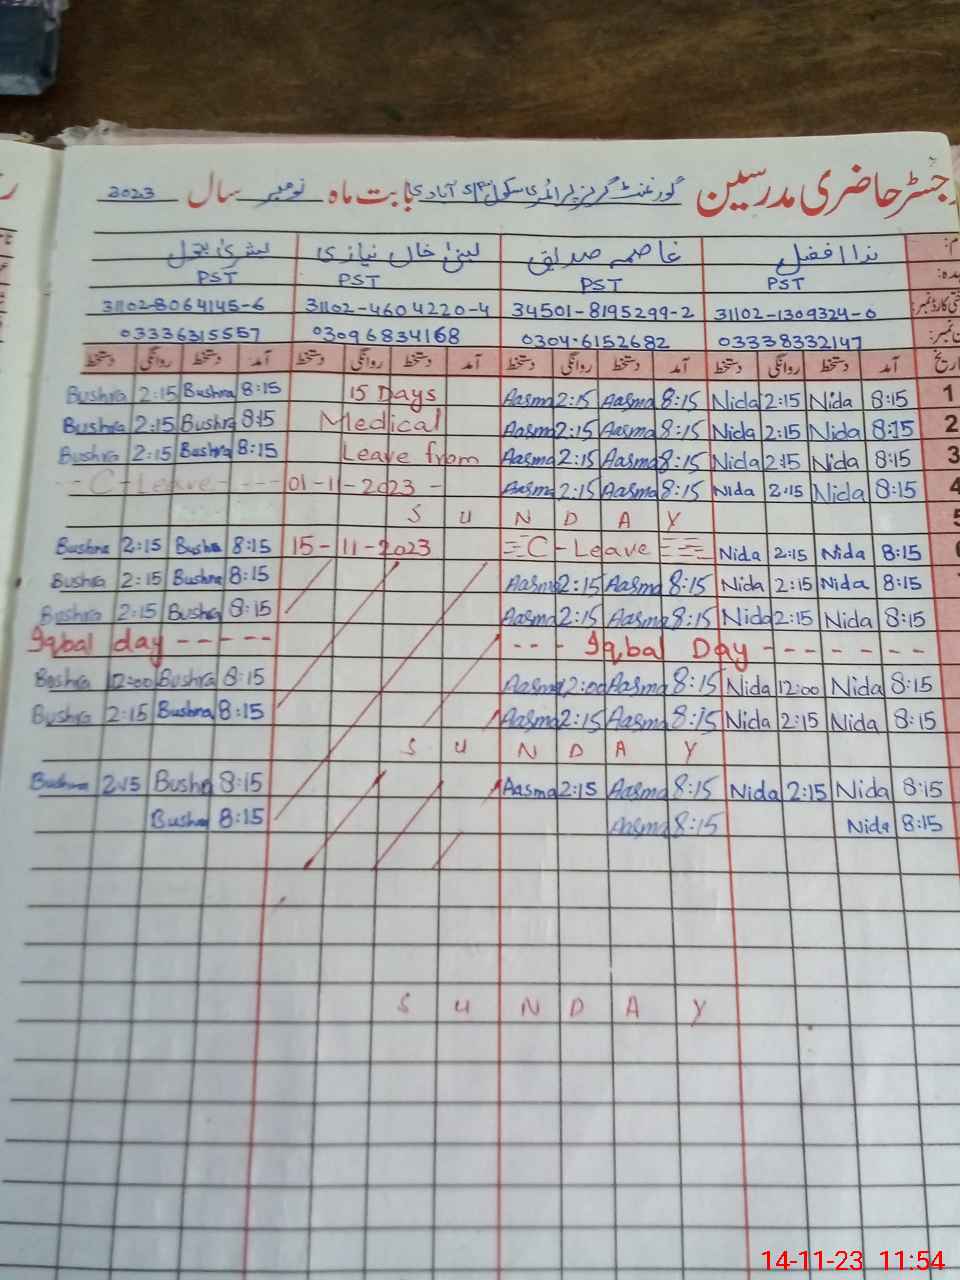 رجسٹر حاضری مدرسین گورنمنٹ گرلز پرائمری سکول آبادی بابت ماہ نومبر سال 2023
ندا افضل عاصمہ صدیقی لبنیٰ خان نیازی بشریٰ بتول
PST PST PST PST
31102-8064145-6 31102-4604220-4 34501-8195299-2 31102-1309324-0
03336315557 03096834168 0304-6152682 03338332147
تاریخ آمد دستخط روانگی دستخط آمد دستخط روانگی دستخط آمد دستخط روانگی دستخط آمد دستخط روانگی دستخط
Bushra 2:15 Bushra 8:15 15 Days Aasma 2:15 Aasma 8:15 Nida 2:15 Nida 8:15 1
Bushra 2:15 Bushra 8:15 Medical Aasma 2:15 Aasma 8:15 Nida 2:15 Nida 8:15 2
Bushra 2:15 Bushra 8:15 Leave from Aasma 2:15 Aasma 8:15 Nida 2:15 Nida 8:15 3
- C - Leave - - - - 01-11-2023 - Aasma 2:15 Aasma 8:15 Nida 2:15 Nida 8:15 4
S U N D A Y 5
Bushra 2:15 Bushra 8:15 15-11-2023 C-Leave Nida 2:15 Nida 8:15
Bushra 2:15 Bushra 8:15 Aasma 2:15 Aasma 8:15 Nida 2:15 Nida 8:15
Bushra 2:15 Bushra 8:15 Aasma 2:15 Aasma 8:15 Nida 2:15 Nida 8:15
Iqbal day - - - - - - - - Iqbal Day - - - - - - -
Boshra 12:00 Bushra 8:15 Aasma 12:00 Aasma 8:15 Nida 12:00 Nida 8:15
Bushra 2:15 Bushra 8:15 Aasma 2:15 Aasma 8:15 Nida 2:15 Nida 8:15
S U N D A Y
Bushra 2:15 Bushra 8:15 Aasma 2:15 Aasma 8:15 Nida 2:15 Nida 8:15
Bushra 8:15 Aasma 8:15 Nida 8:15
S U N D A Y
14-11-23 11:54